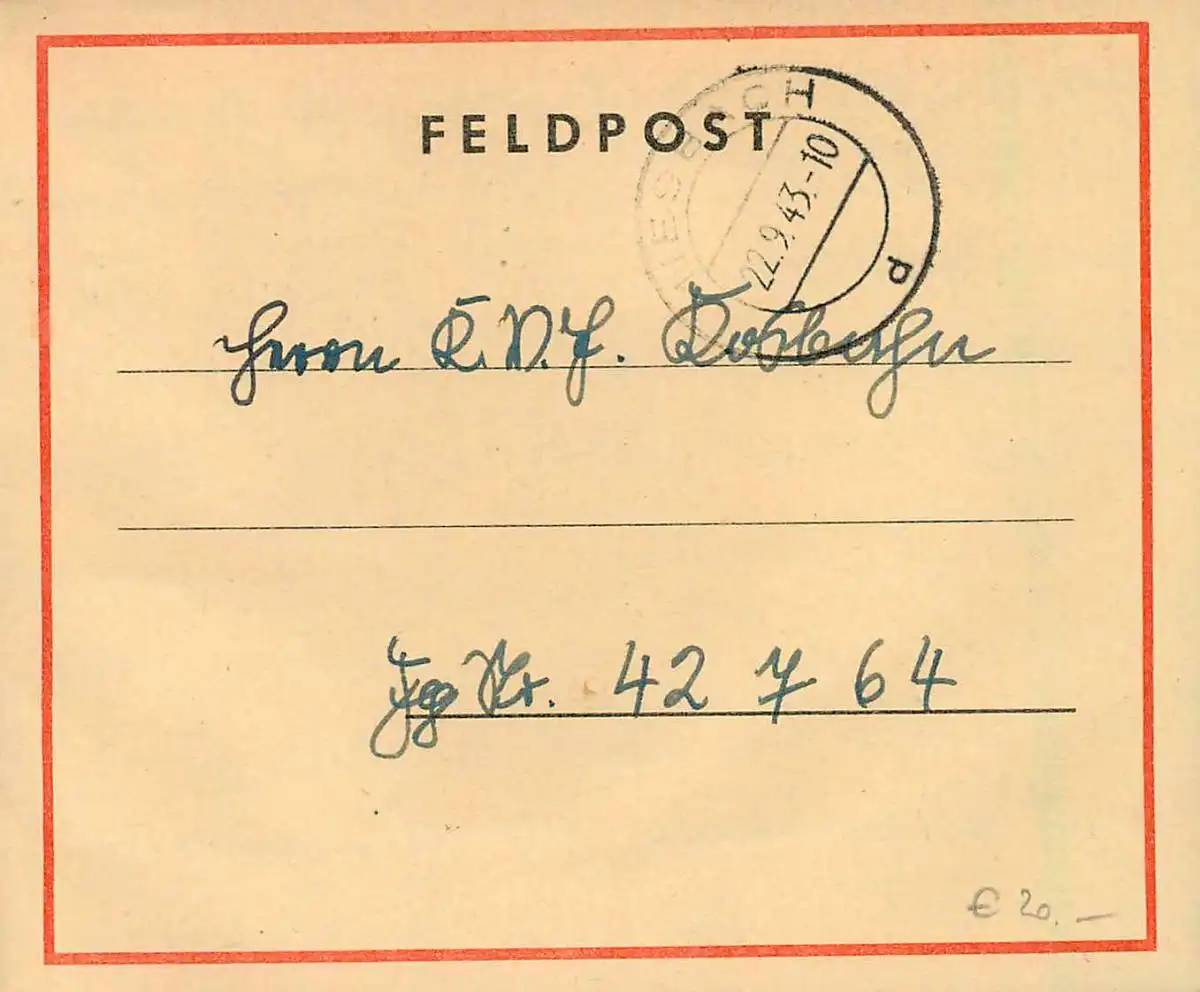 FELDPOST
MIESBACH
22.9.43.-10
d
Herrn K.V.J.
Fg Nr. 42 7 64
€ 20.—